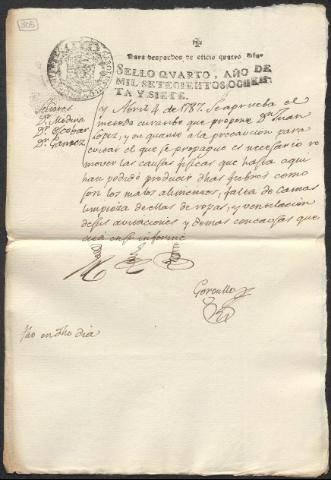 305
Para despachos de oficio quatro mrs.
SELLO QVARTO, AÑO DE
MIL SETECIENTOS OCHEN-
TA Y SIETE.
Señores
Dr. Medina
Dr. Escobar
Dr. Gamez
y Abril 4 de 1787. Se aprueba el
metodo curatibo que propone Dn. Juan
Lopez, y en quanto a la precaucion para
evitar el que se propague es necesario re
mover las causas fisicas que hasta aqui
han podido producir dhas fiebres como
son los malos alimentos, falta de camas
limpieza de ellas de ropas, y ventilacion
de sus avitaciones y demas concausas que
dicé en su informe
Gorcullo
fho en dho dia